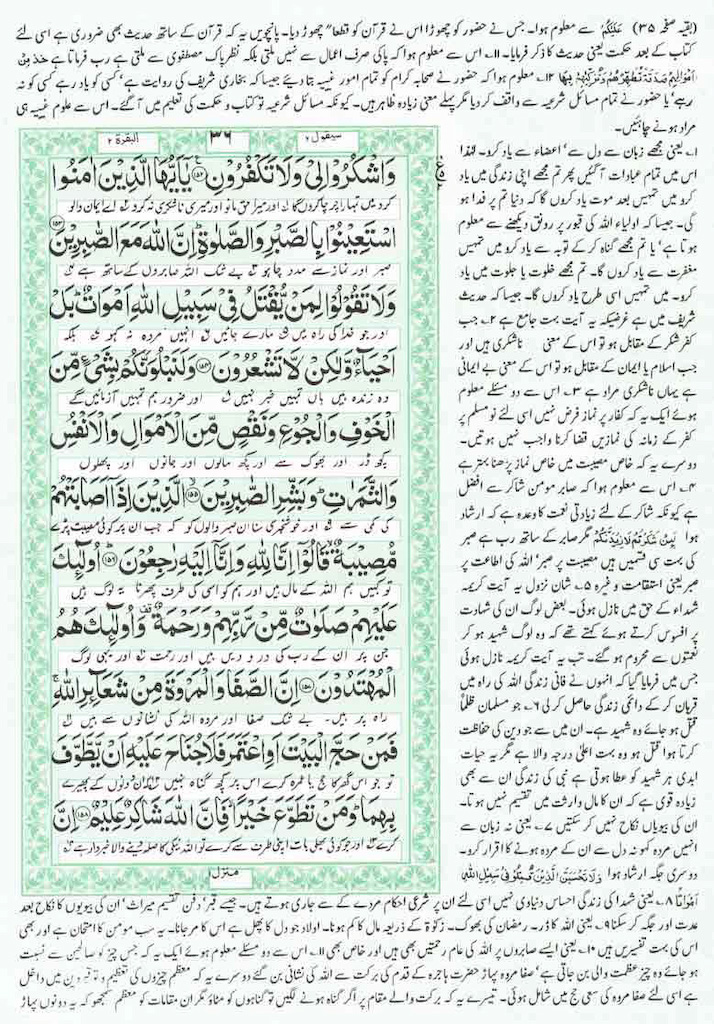 (بقیہ صفحہ ۳۵) عَلَیْكُمْ سے معلوم ہوا۔ جس نے حضور کو چھوڑا اس نے قرآن کو قطعاً چھوڑ دیا۔ پانچویں یہ کہ قرآن کے ساتھ حدیث بھی ضروری ہے اسی لئے
کتاب کے بعد حکمت یعنی حدیث کا ذکر فرمایا۔ ۱۱۔ اس سے معلوم ہوا کہ پاکی صرف اعمال سے نہیں ملتی بلکہ نظر پاک مصطفوی سے ملتی ہے رب فرماتا ہے خُذْ مِنْ
اَمْوَالِهِمْ صَدَقَةً تُطَهِّرُهُمْ وَتُزَكِّيْهِمْ بِهَا ۱۲۔ معلوم ہوا کہ حضور نے صحابہ کرام کو تمام امور غیبیہ بتا دیئے جیسا کہ بخاری شریف کی روایت ہے' کسی کو یاد رہے کسی کو نہ
رہے' یا حضور نے تمام مسائل شرعیہ سے واقف کر دیا مگر پہلے معنی زیادہ ظاہر ہیں۔ کیونکہ مسائل شرعیہ تو کتاب و حکمت کی تعلیم میں آ گئے۔ اس سے علوم غیبیہ ہی
مراد ہونے چاہئیں۔
سیقول ۲ ۳۶ البقرۃ ۲
وَاشْكُرُوْا لِیْ وَلَا تَكْفُرُوْنِ ﴿۱۵۲﴾ یٰۤاَیُّهَا الَّذِیْنَ اٰمَنُوا
کرو میں تمہارا چرچا کروں گا اور میرا حق مانو اور میری ناشکری نہ کرو اے ایمان والو
اسْتَعِیْنُوْا بِالصَّبْرِ وَالصَّلٰوةِ اِنَّ اللّٰهَ مَعَ الصّٰبِرِیْنَ ﴿۱۵۳﴾
صبر اور نماز سے مدد چاہو بے شک اللہ صابروں کے ساتھ ہے
وَلَا تَقُوْلُوْا لِمَنْ یُّقْتَلُ فِیْ سَبِیْلِ اللّٰهِ اَمْوَاتٌ بَلْ
اور جو خدا کی راہ میں مارے جائیں انہیں مردہ نہ کہو بلکہ
اَحْیَآءٌ وَّلٰكِنْ لَّا تَشْعُرُوْنَ ﴿۱۵۴﴾ وَلَنَبْلُوَنَّكُمْ بِشَیْءٍ مِّنَ
وہ زندہ ہیں ہاں تمہیں خبر نہیں اور ضرور ہم تمہیں آزمائیں گے
الْخَوْفِ وَالْجُوْعِ وَنَقْصٍ مِّنَ الْاَمْوَالِ وَالْاَنْفُسِ
کچھ ڈر اور بھوک سے اور کچھ مالوں اور جانوں اور پھلوں
وَالثَّمَرٰتِ وَبَشِّرِ الصّٰبِرِیْنَ ﴿۱۵۵﴾ الَّذِیْنَ اِذَاۤ اَصَابَتْهُمْ
کی کمی سے اور خوشخبری سنا ان صبر والوں کو کہ جب ان پر کوئی مصیبت پڑے
مُّصِیْبَةٌ قَالُوْۤا اِنَّا لِلّٰهِ وَاِنَّاۤ اِلَیْهِ رٰجِعُوْنَ ﴿۱۵۶﴾ اُولٰٓىِٕكَ
تو کہیں ہم اللہ کے مال ہیں اور ہم کو اسی کی طرف پھرنا یہ لوگ ہیں
عَلَیْهِمْ صَلَوٰتٌ مِّنْ رَّبِّهِمْ وَرَحْمَةٌ وَاُولٰٓىِٕكَ هُمُ
جن پر ان کے رب کی درودیں ہیں اور رحمت اور یہی لوگ
الْمُهْتَدُوْنَ ﴿۱۵۷﴾ اِنَّ الصَّفَا وَالْمَرْوَةَ مِنْ شَعَآىِٕرِ اللّٰهِ
راہ پر ہیں۔ بے شک صفا اور مروہ اللہ کی نشانوں سے ہیں
فَمَنْ حَجَّ الْبَیْتَ اَوِ اعْتَمَرَ فَلَا جُنَاحَ عَلَیْهِ اَنْ یَّطَّوَّفَ
تو جو اس گھر کا حج یا عمرہ کرے اس پر کچھ گناہ نہیں کہ ان دونوں کے پھیرے
بِهِمَا وَمَنْ تَطَوَّعَ خَیْرًا فَاِنَّ اللّٰهَ شَاكِرٌ عَلِیْمٌ ﴿۱۵۸﴾ اِنَّ
کرے اور جو کوئی بھلی بات اپنی طرف سے کرے تو اللہ نیکی کا صلہ دینے والا خبردار ہے
منزل ۱
۱۔ یعنی مجھے زبان سے دل سے' اعضاء سے یاد کرو۔ لہٰذا
اس میں تمام عبادات آ گئیں پھر تم مجھے اپنی زندگی میں یاد
کرو میں تمہیں بعد موت یاد کروں گا کہ دنیا تم پر فدا ہو
گی۔ جیسا کہ اولیاء اللہ کی قبور پر رونق دیکھنے سے معلوم
ہوتا ہے' یا تم مجھے گناہ کر کے توبہ سے یاد کرو میں تمہیں
مغفرت سے یاد کروں گا۔ تم مجھے خلوت یا جلوت میں یاد
کرو۔ میں تمہیں اسی طرح یاد کروں گا۔ جیسا کہ حدیث
شریف میں ہے غرضیکہ یہ آیت بہت جامع ہے ۲۔ جب
کفر شکر کے مقابل ہو تو اس کے معنی ناشکری ہیں اور
جب اسلام یا ایمان کے مقابل ہو تو اس کے معنی بے ایمانی
ہے یہاں ناشکری مراد ہے ۳۔ اس سے دو مسئلے معلوم
ہوئے ایک یہ کہ کفار پر نماز فرض نہیں اسی لئے نو مسلم پر
کفر کے زمانہ کی نمازیں قضا کرنا واجب نہیں ہوتیں۔
دوسرے یہ کہ خاص مصیبت میں خاص نماز پڑھنا بہتر ہے
۴۔ اس سے معلوم ہوا کہ صابر مومن شاکر سے افضل
ہے کیونکہ شاکر کے لئے زیادتی نعمت کا وعدہ ہے کہ ارشاد
ہوا لَىِٕنْ شَكَرْتُمْ لَاَزِیْدَنَّكُمْ مگر صابر کے ساتھ رب ہے صبر
کی بہت سی قسمیں ہیں مصیبت پر صبر' اللہ کی اطاعت پر
صبر یعنی استقامت وغیرہ ۵۔ شان نزول یہ آیت کریمہ
شہداء کے حق میں نازل ہوئی۔ بعض لوگ ان کی شہادت
پر افسوس کرتے ہوئے کہتے تھے کہ وہ لوگ شہید ہو کر
نعمتوں سے محروم ہو گئے۔ تب یہ آیت کریمہ نازل ہوئی
جس میں فرمایا گیا کہ انہوں نے فانی زندگی اللہ کی راہ میں
قربان کر کے دائمی زندگی حاصل کر لی ۶۔ جو مسلمان ظلماً
قتل ہو جائے وہ شہید ہے۔ ان میں سے جو دین کی حفاظت
کرتا ہوا قتل ہو وہ بہت اعلیٰ درجہ والا ہے مگر یہ حیات
ابدی ہر شہید کو عطا ہوتی ہے نبی کی زندگی ان سے بھی
زیادہ قوی ہے کہ ان کا مال وارثت میں تقسیم نہیں ہوتا۔
ان کی بیویاں نکاح نہیں کر سکتیں ۷۔ یعنی نہ زبان سے
انہیں مردہ کہو نہ دل سے ان کے مردہ ہونے کا اقرار کرو۔
دوسری جگہ ارشاد ہوا وَلَا تَحْسَبَنَّ الَّذِیْنَ قُتِلُوْا فِیْ سَبِیْلِ اللّٰهِ
اَمْوَاتًا ۸۔ یعنی شہدا کی زندگی احساس دنیاوی نہیں اسی لئے ان پر شرعی احکام مردے کے سے جاری ہوتے ہیں۔ جیسے قبر' دفن' تقسیم میراث' ان کی بیویوں کا نکاح بعد
عدت اور جگہ کر سکنا ۹۔ یعنی اللہ کا ڈر۔ رمضان کی بھوک۔ زکوٰۃ کے ذریعہ مال کا کم ہونا۔ اولاد جو دل کا پھل ہے اس کا مر جانا۔ یہ سب مومن کا امتحان ہے اور بھی
اس کی بہت تفسیریں ہیں ۱۰۔ یعنی ایسے صابروں پر اللہ کی عام رحمتیں بھی ہیں اور خاص بھی ۱۱۔ اس سے دو مسئلے معلوم ہوئے ایک یہ کہ جس چیز کو صالحین سے نسبت
ہو جائے وہ چیز عظمت والی بن جاتی ہے' صفا مروہ پہاڑ حضرت ہاجرہ کے قدم کی برکت سے اللہ کی نشانی بن گئے دوسرے یہ کہ معظم چیزوں کی تعظیم و توقیر دین میں داخل
ہے اسی لئے صفا مروہ کی سعی حج میں شامل ہوئی۔ تیسرے یہ کہ برکت والے مقام پر اگر گناہ ہونے لگیں تو گناہوں کو مٹاؤ مگر ان مقامات کو معظم سمجھو کہ یہ دونوں پہاڑ